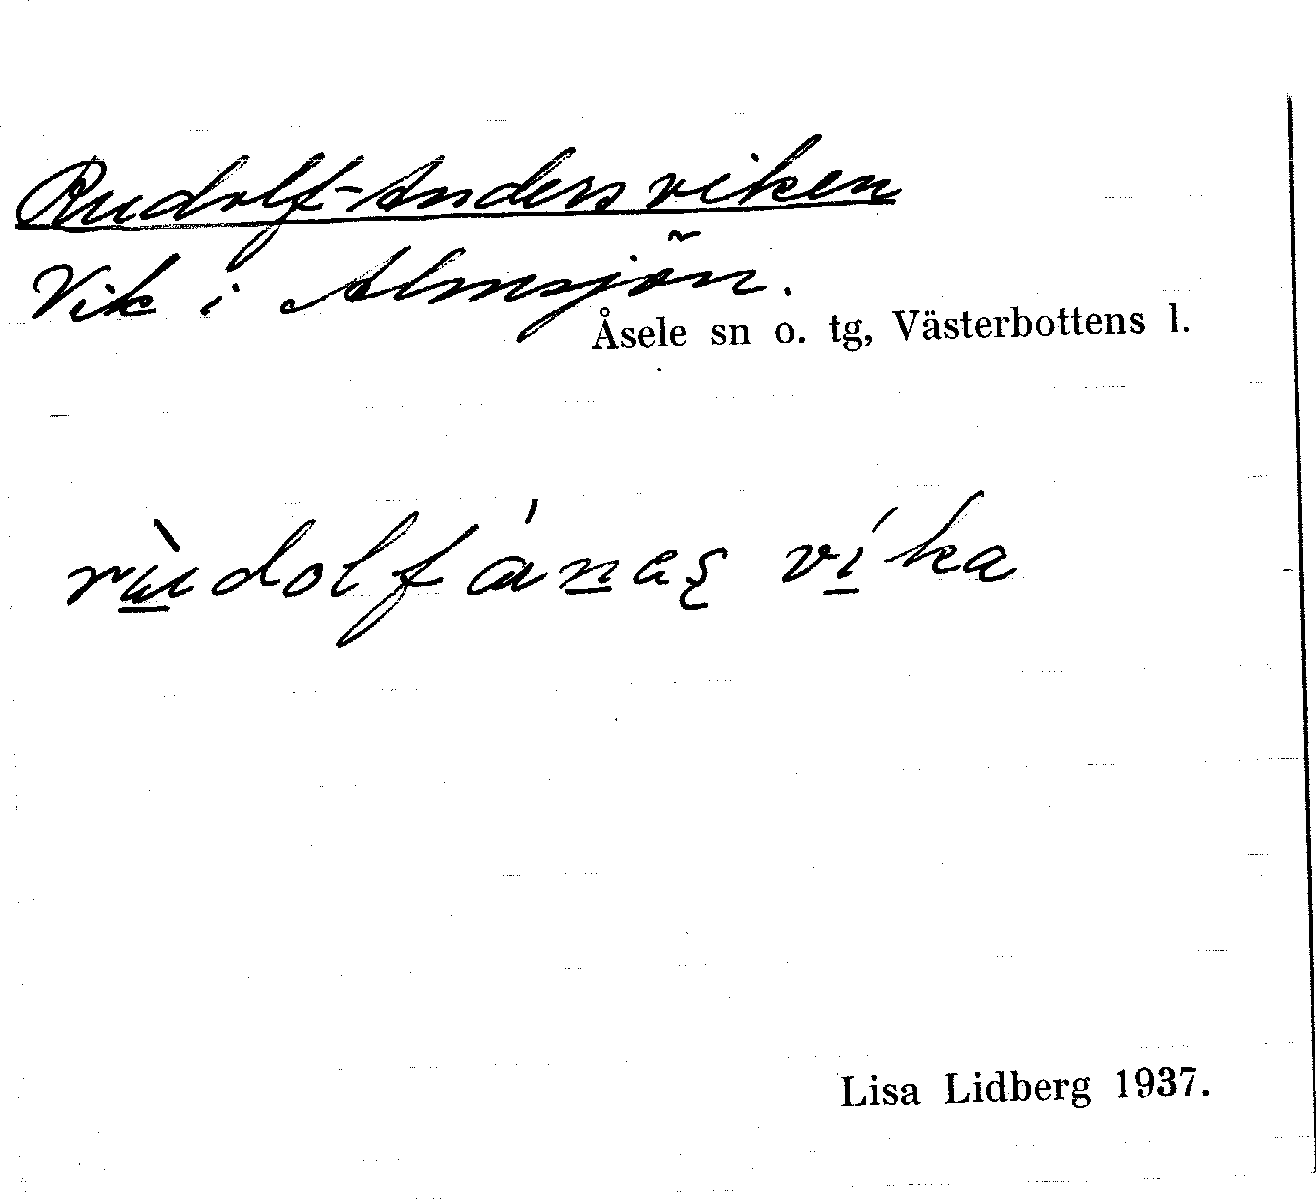 Rudolf-Andersviken
Vik i Almsjön.
Åsele sn o. tg, Västerbottens l.
rù̲dolfán̲aş ví̲ka
Lisa Lidberg 1937.